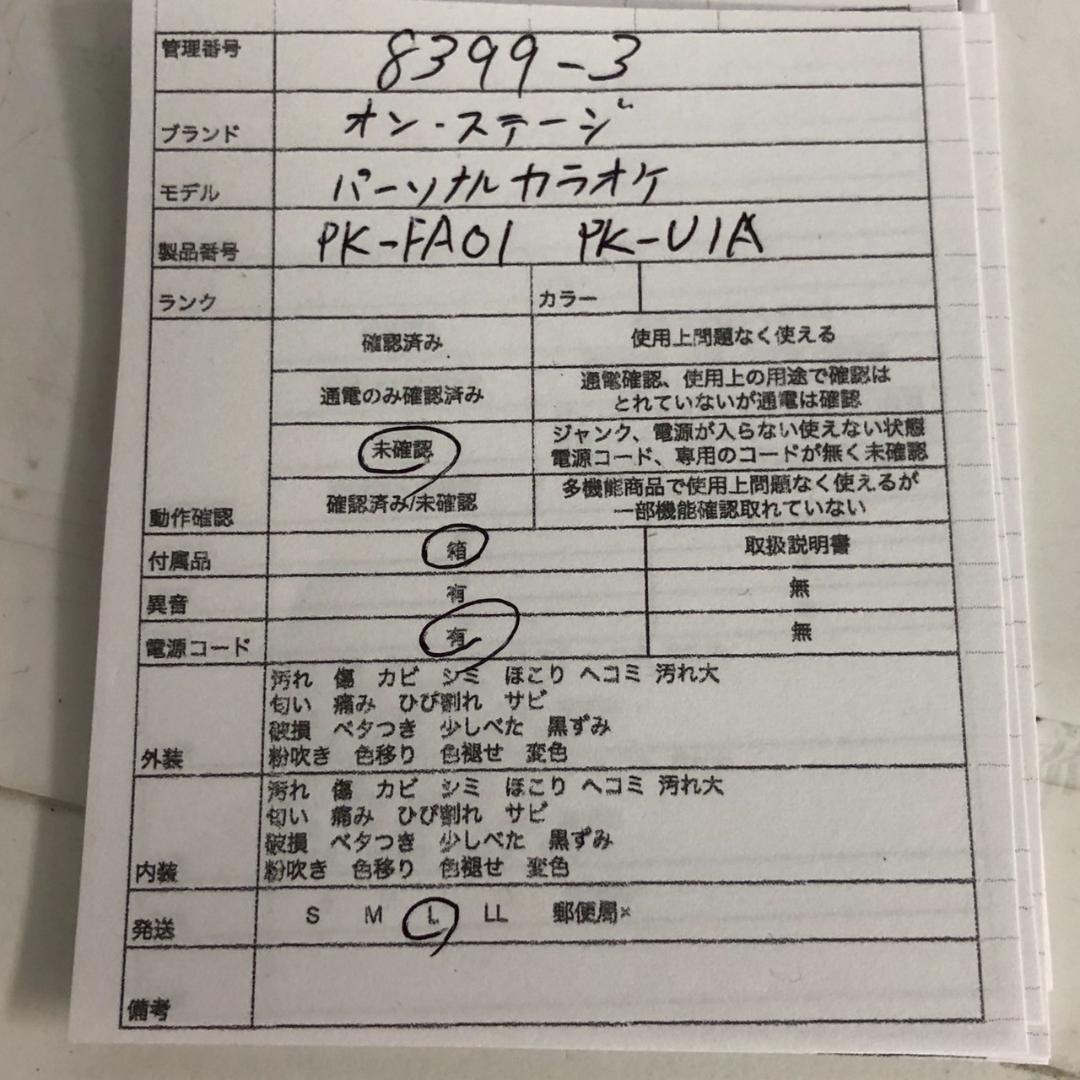 管理番号 8399-3
ブランド オン・ステージ
モデル パーソナルカラオケ
製品番号 PK-FA01 PK-U1A
ランク カラー
確認済み 使用上問題なく使える
通電のみ確認済み 通電確認、使用上の用途で確認は
とれていないが通電は確認
未確認 ジャンク、電源が入らない使えない状態
電源コード、専用のコードが無く未確認
確認済み/未確認 多機能商品で使用上問題なく使えるが
一部機能確認取れていない
動作確認
付属品 箱 取扱説明書
異音 有 無
電源コード 有 無
汚れ 傷 カビ シミ ほこり ヘコミ 汚れ大
匂い 痛み ひび割れ サビ
破損 ベタつき 少しべた 黒ずみ
外装 粉吹き 色移り 色褪せ 変色
汚れ 傷 カビ シミ ほこり ヘコミ 汚れ大
匂い 痛み ひび割れ サビ
破損 ベタつき 少しべた 黒ずみ
内装 粉吹き 色移り 色褪せ 変色
発送 S M L LL 郵便局×
備考